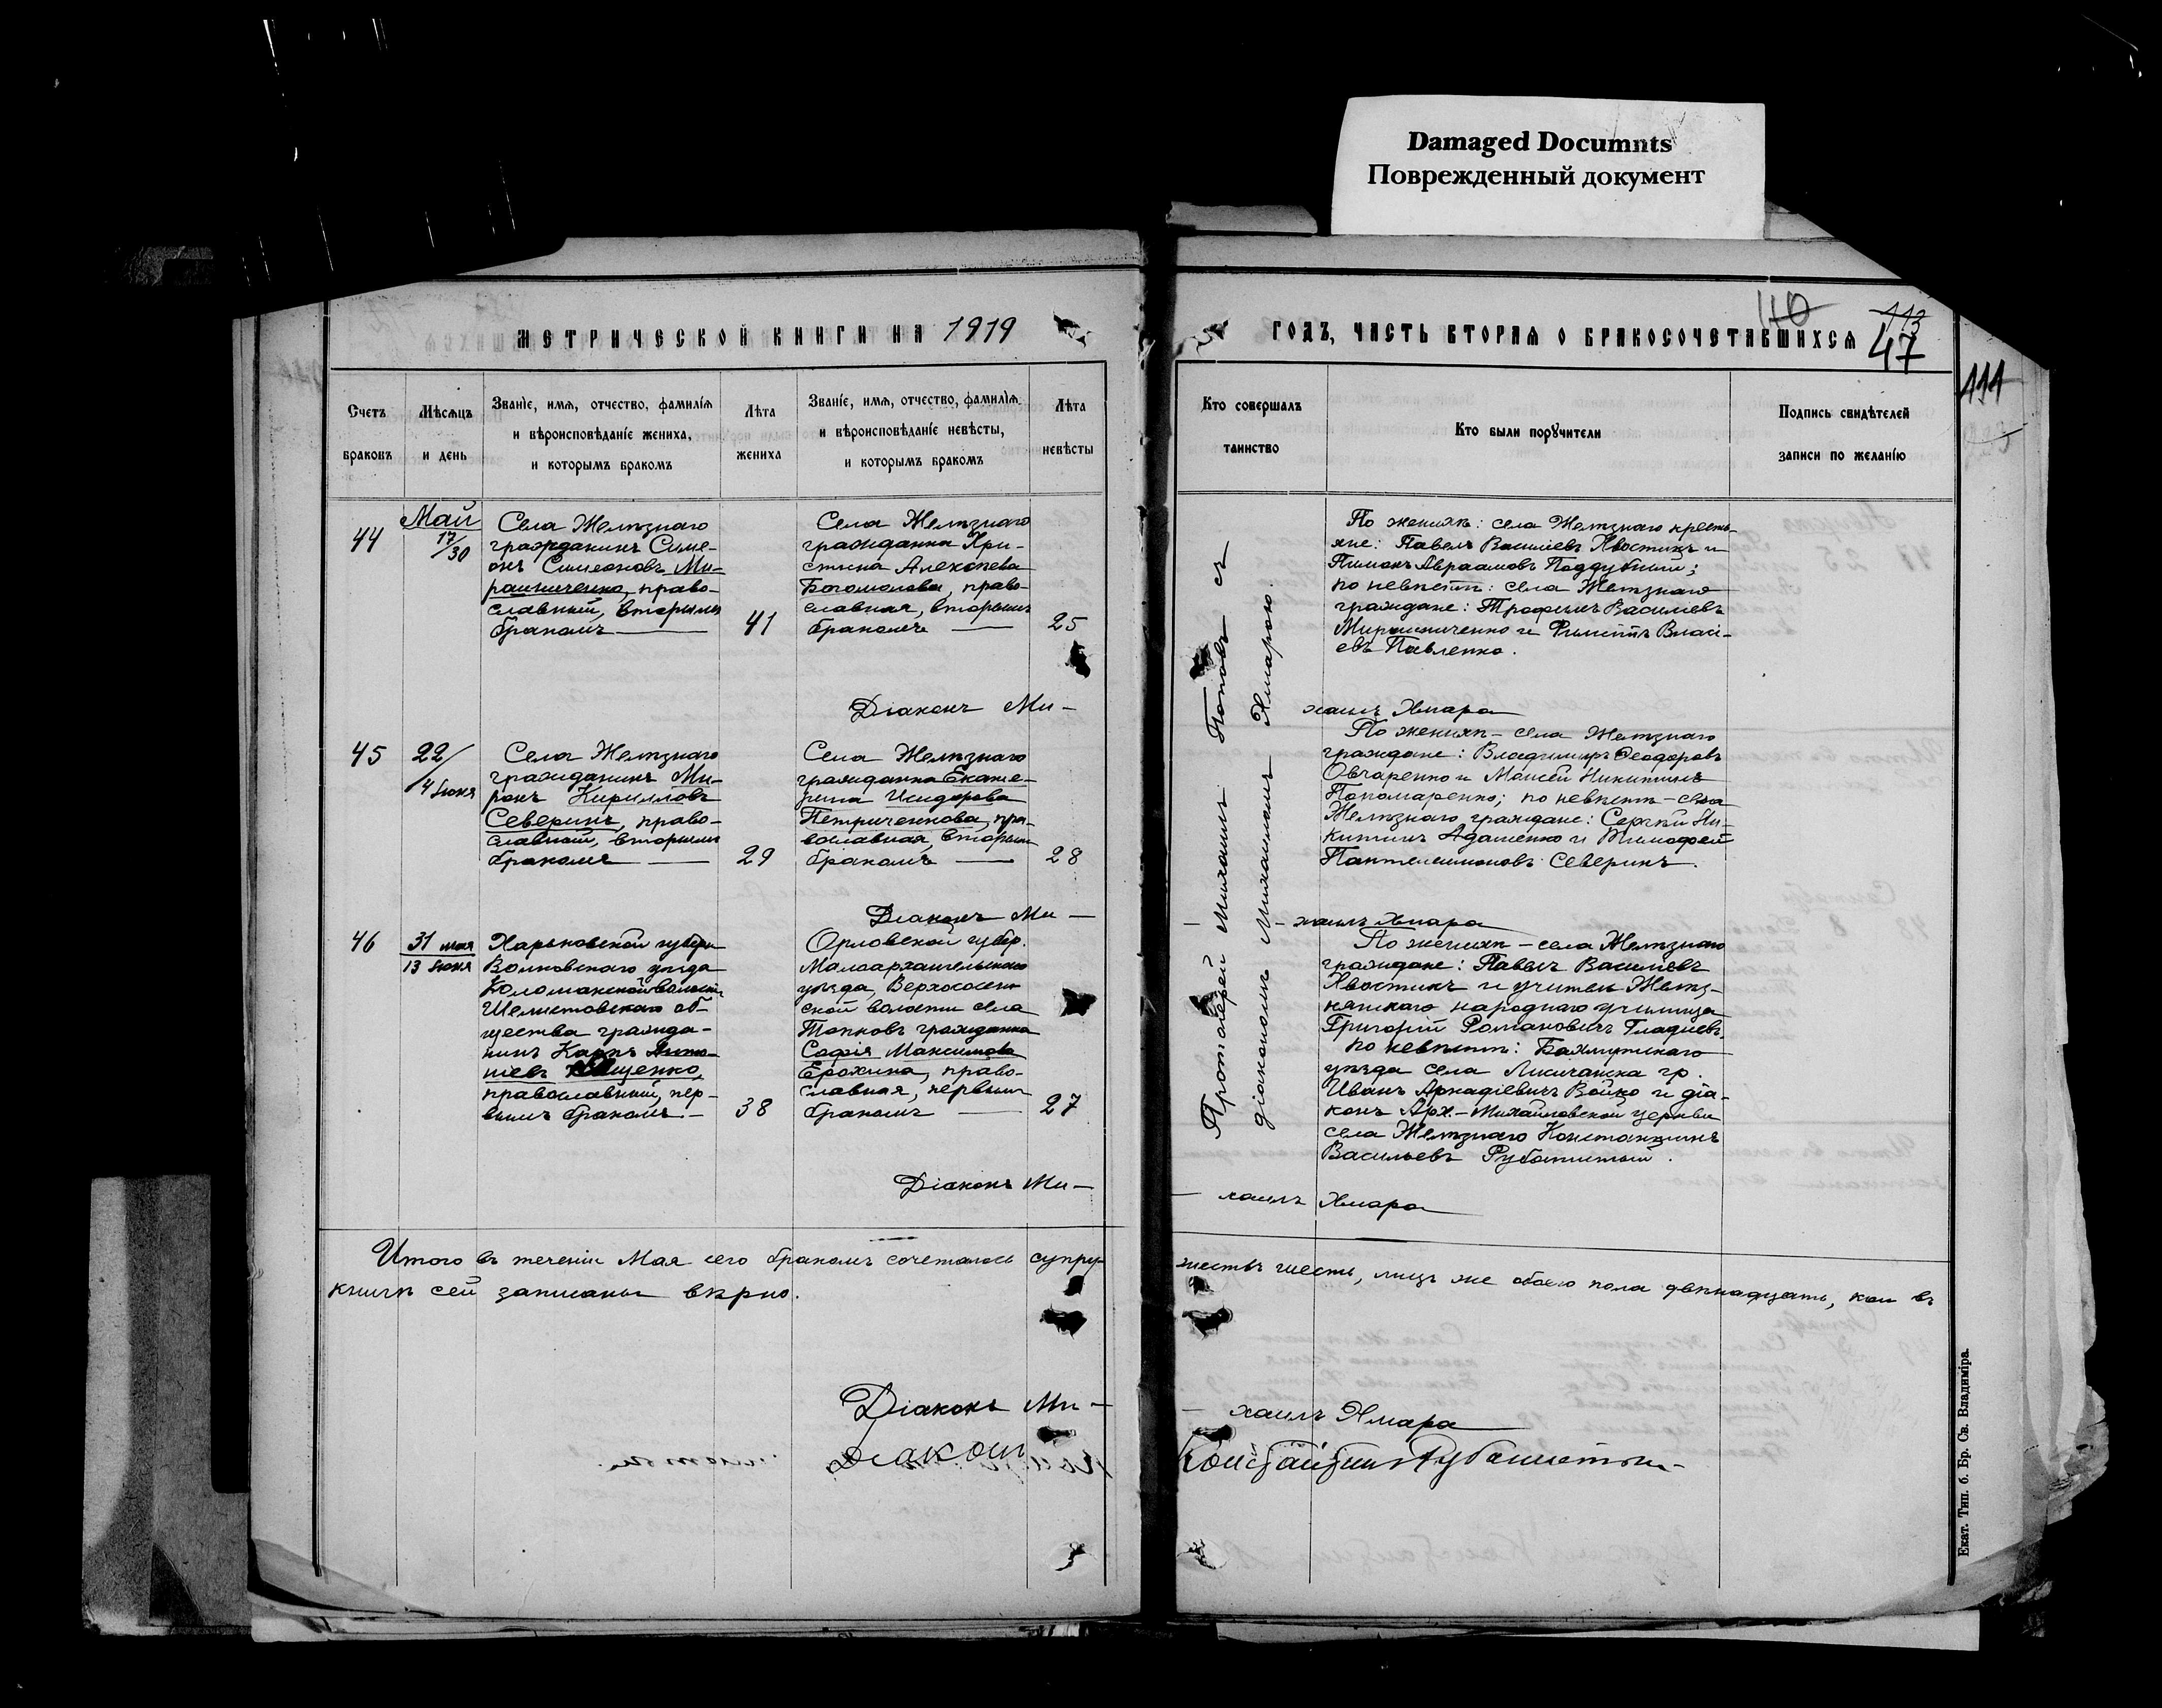 Damaged Documnts
Поврежденный документ
110
113
47
111
МЕТРИЧЕСКОЙ КНИГИ НА 1919
ГОДЪ, ЧАСТЬ ВТОРАЯ О БРАКОСОЧЕТАВШИХСЯ
Счетъ браковъ
Мѣсяцъ и день
Званіе, имя, отчество, фамилія
и вѣроисповѣданіе жениха,
и которымъ бракомъ
Лѣта жениха
Званіе, имя, отчество, фамилія
и вѣроисповѣданіе невѣсты,
и которымъ бракомъ
Лѣта невѣсты
Кто совершалъ таинство
Кто были поручители
Подпись свидѣтелей
записи по желанію
44
Май
17/30
Села Желѣзнаго
гражданинъ Симе-
онъ Симеоновъ Ми-
рошниченко, право-
славный, вторымъ
бракомъ
41
Села Желѣзнаго
гражданка Хри-
стина Алексѣева
Богомолова, право-
славная, вторымъ
бракомъ
25
По женихѣ: села Желѣзнаго кресть-
яне: Павелъ Василіевъ Хвостикъ и
Пименъ Авраамовъ Поддубный;
по невѣстѣ: села Желѣзнаго
граждане: Трофимъ Василіевъ
Мирошниченко и Филиппъ Власі-
евъ Павленко.
Діаконъ Ми-
хаилъ Хмара
45
22/
4 Іюня
Села Желѣзнаго
гражданинъ Ми-
ронъ Кирилловъ
Северинъ, право-
славный, вторымъ
бракомъ
29
Села Желѣзнаго
гражданка Екате-
рина Исидорова
Петриченкова, пра-
вославная, вторымъ
бракомъ
28
По женихѣ - села Желѣзнаго
граждане: Владимиръ Ѳеодоровъ
Овчаренко и Моисей Никитинъ
Пономаренко; по невѣстѣ - села
Желѣзнаго граждане: Сергѣй Ни-
китинъ Адаменко и Тимофей
Пантелеимоновъ Северинъ.
Діаконъ Ми-
- хаилъ Хмара
46
31 мая
13 Іюня
Харьковской губерн
Волковскаго уѣзда
Коломакской волости
Шелестовскаго об-
щества гражда-
нинъ Карпъ
православный, пер-
вымъ бракомъ -
38
Орловской губер.
Малоархангельскаго
уѣзда, Верхососен
ской волости села
Топковъ гражданка
Софія Максимова
Ерохина, право-
славная, первымъ
бракомъ
27
По женихѣ - села Желѣзнаго
граждане: Павелъ Василіевъ
Хвостикъ и учитель Желѣз-
нянскаго народнаго училища
Григорій Романовичъ Гладиевъ,
по невѣстѣ: Бахмутскаго
уѣзда села Лисичанска гр.
Иванъ Аркадіевичъ Войко и діа-
конъ Арх.-Михайловской церкви
села Желѣзнаго Константинъ
Васильевъ Рубашистый.
Діаконъ Ми-
- хаилъ Хмара
Протоіерей Михаилъ Поповъ съ
діакономъ Михаиломъ Хмарою.
Итого въ теченіи Мая сего бракомъ сочеталось супру-
жествъ шесть, лицъ же обоего пола двѣнадцать, кои въ
книгѣ сей записаны вѣрно.
Діаконъ Ми-
- хаилъ Хмара
Діаконъ
Константинъ Рубашистый
Екат. Тип. б. Бр. Св. Владиміра.